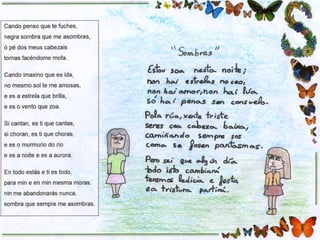 Cando penso que te fuches,
negra sombra que me asombras,
ó pé dos meus cabezais
tornas facéndome mofa.
Cando imaxino que es ida,
no mesmo sol te me amosas,
e es a estrela que brilla,
e es o vento que zoa.
Si cantan, es ti que cantas,
si choran, es ti que choras,
e es o murmurio do río
e es a noite e es a aurora.
En todo estás e ti es todo,
para min e en min mesma moras,
nin me abandonarás nunca,
sombra que sempre me asombras.
"Sombras"
Estou soa nesta noite;
non hai estrelas no ceo,
non hai amor, non hai lúa
só hai penas sen consuelo.
Pola rúa, xente triste
seres coa cabeza baixa,
camiñando sempre sós
coma se fosen pantasmas.
Pero sei que algún día
todo isto cambiará
teremos ledicia e festa
e a tristura partirá.